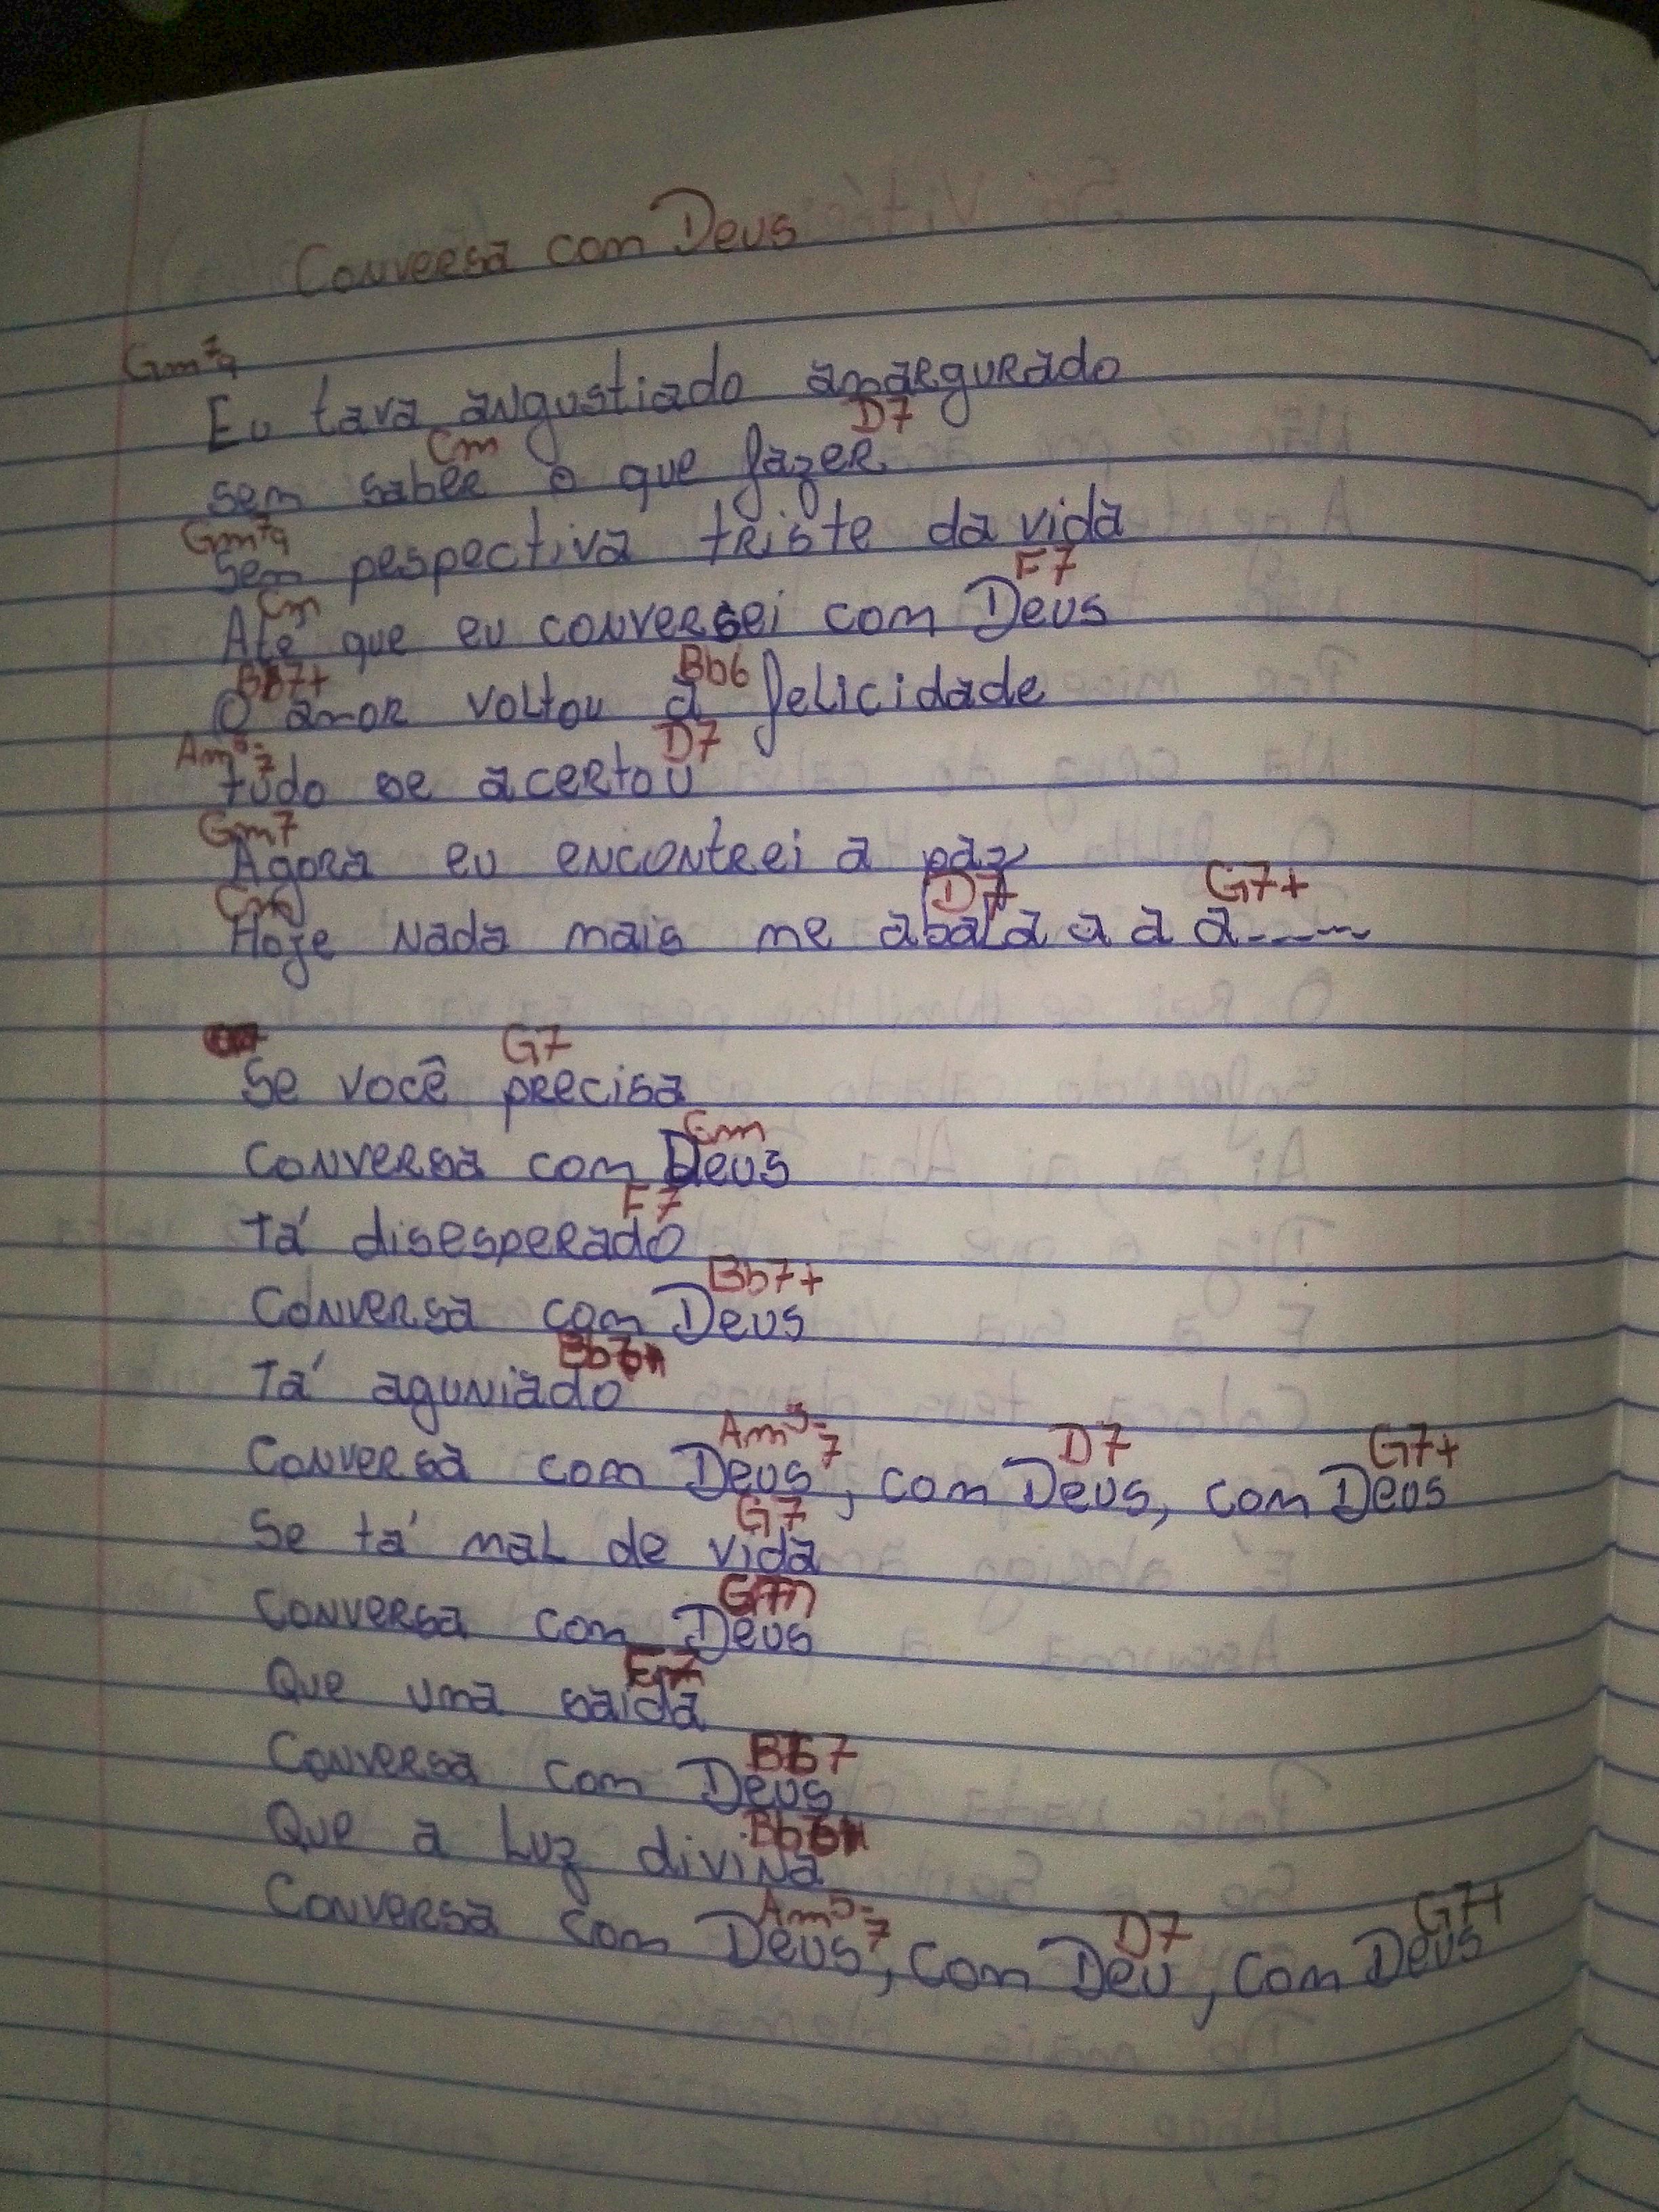 Conversa com Deus
Gm7 9
Eu tava angustiado amargurado
Cm D7
sem saber o que fazer
Gm7 9
Sem pespectiva triste da vida
Cm F7
Até que eu conversei com Deus
Bb7+ Bb6
O amor voltou a felicidade
Am5-7 D7
tudo se acertou
Gm7
Agora eu encontrei a paz
Cm D7 G7+
Hoje nada mais me abala a a a
G7
Se você precisa
Cm
Conversa com Deus
F7
Tá disesperado
Bb7+
Conversa com Deus
Tá aguniado
Am5-7 D7 G7+
Conversa com Deus, com Deus, com Deus
G7
Se tá mal de vida
Conversa com Deus
Que uma saida
Bb7
Conversa com Deus
Que a Luz divina
Am5-7 D7 G7+
Conversa com Deus, com Deu, com Deus